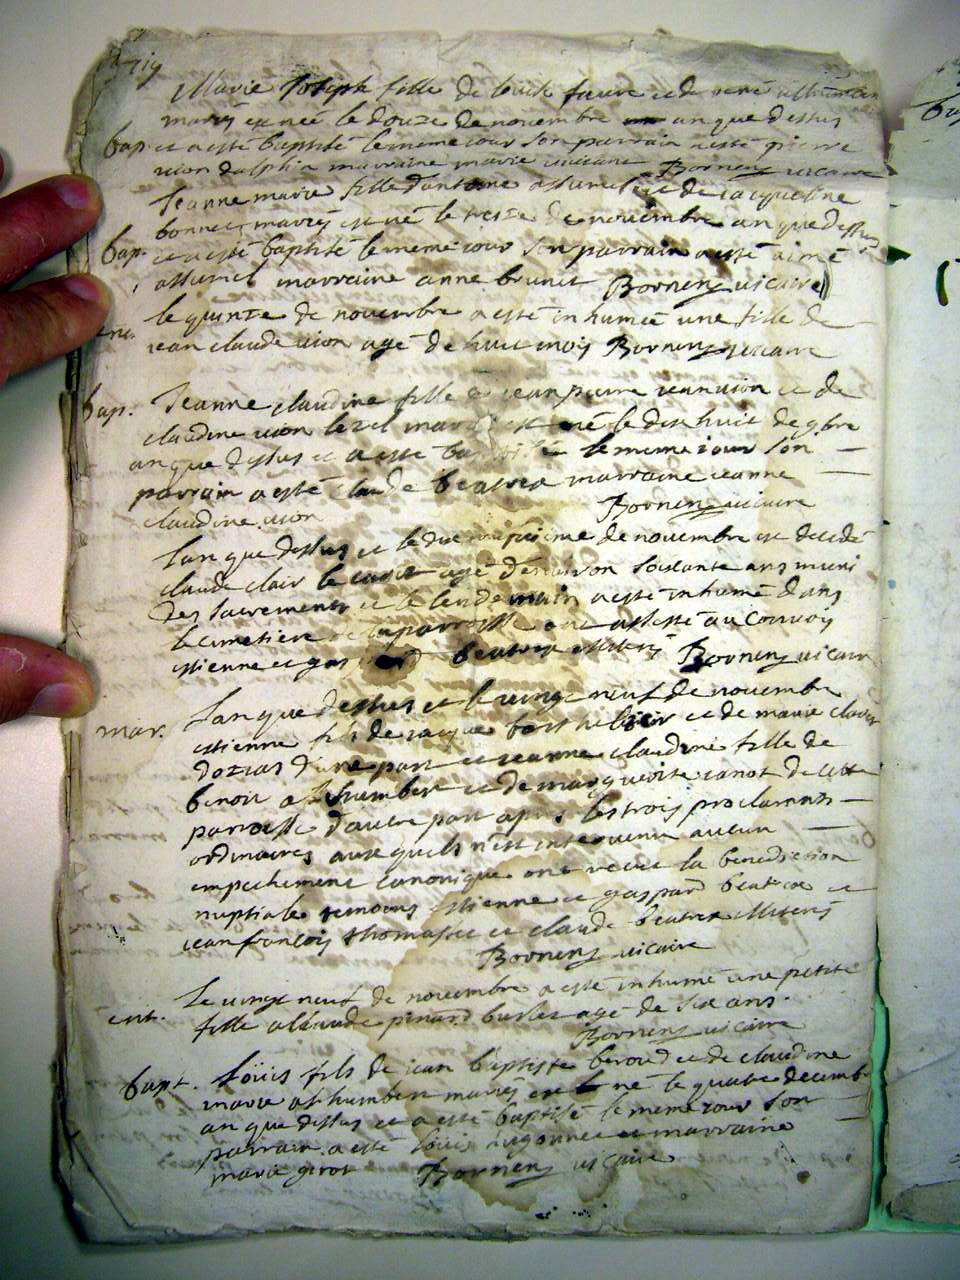 719
Marie Joseph fille de louis favre et de
mariés est née le douze de novembre an que dessus
bap. et a esté baptisé le meme jour son parrain a esté pierre
vion dalphin marraine marie Bornens vicaire
Jeanne marie fille d'antoine et de jacquemine
bonnet mariés est né le treize de novembre an que dessus
bap. et a esté baptisé le meme jour son parrain a esté aimé
marraine anne brunet Bornens vicaire
le quinze de novembre a esté inhumée une fille de
ent. jean claude vion agé de huit mois Bornens vicaire
bap. Jeanne claudine fille de jean pierre jean vion et de
claudine vion mariés est né le dix huit de 9bre
an que dessus et a esté baptisé le meme jour son
parrain a esté claude beatrix marraine jeanne
claudine vion Bornens vicaire
lan que dessus et le de novembre est decedé
claude clair agé d'environ soixante ans muni
des sacrements et le lendemain a esté inhumé dans
le cimetière de la parroisse ont assisté au convoy
estienne et gaspard beatrix Bornens vicaire
mar. lan que dessus et le vingt neuf de novembre
estienne fils de jacque et de marie
d'une part et jeanne claudine fille de
benoit et de margueritte de cette
parroisse d'autre part apres les trois proclamations
ordinaires auxquels n'est intervenu aucun
empechement canonique ont receu la benediction
nuptiale temoins estienne et gaspard beatrix et
jean françois thomasset et claude beatrix
Bornens vicaire
ent. le vingt neuf de novembre a esté inhumé une petite
fille a claude pinard agé de six ans.
Bornens vicaire
bapt. Loüis fils de jean baptiste beroud et de claudine
marie mariés est né le quatre decembre
an que dessus et a esté baptisé le meme jour son
parrain a esté louis et marraine
marie girot Bornens vicaire